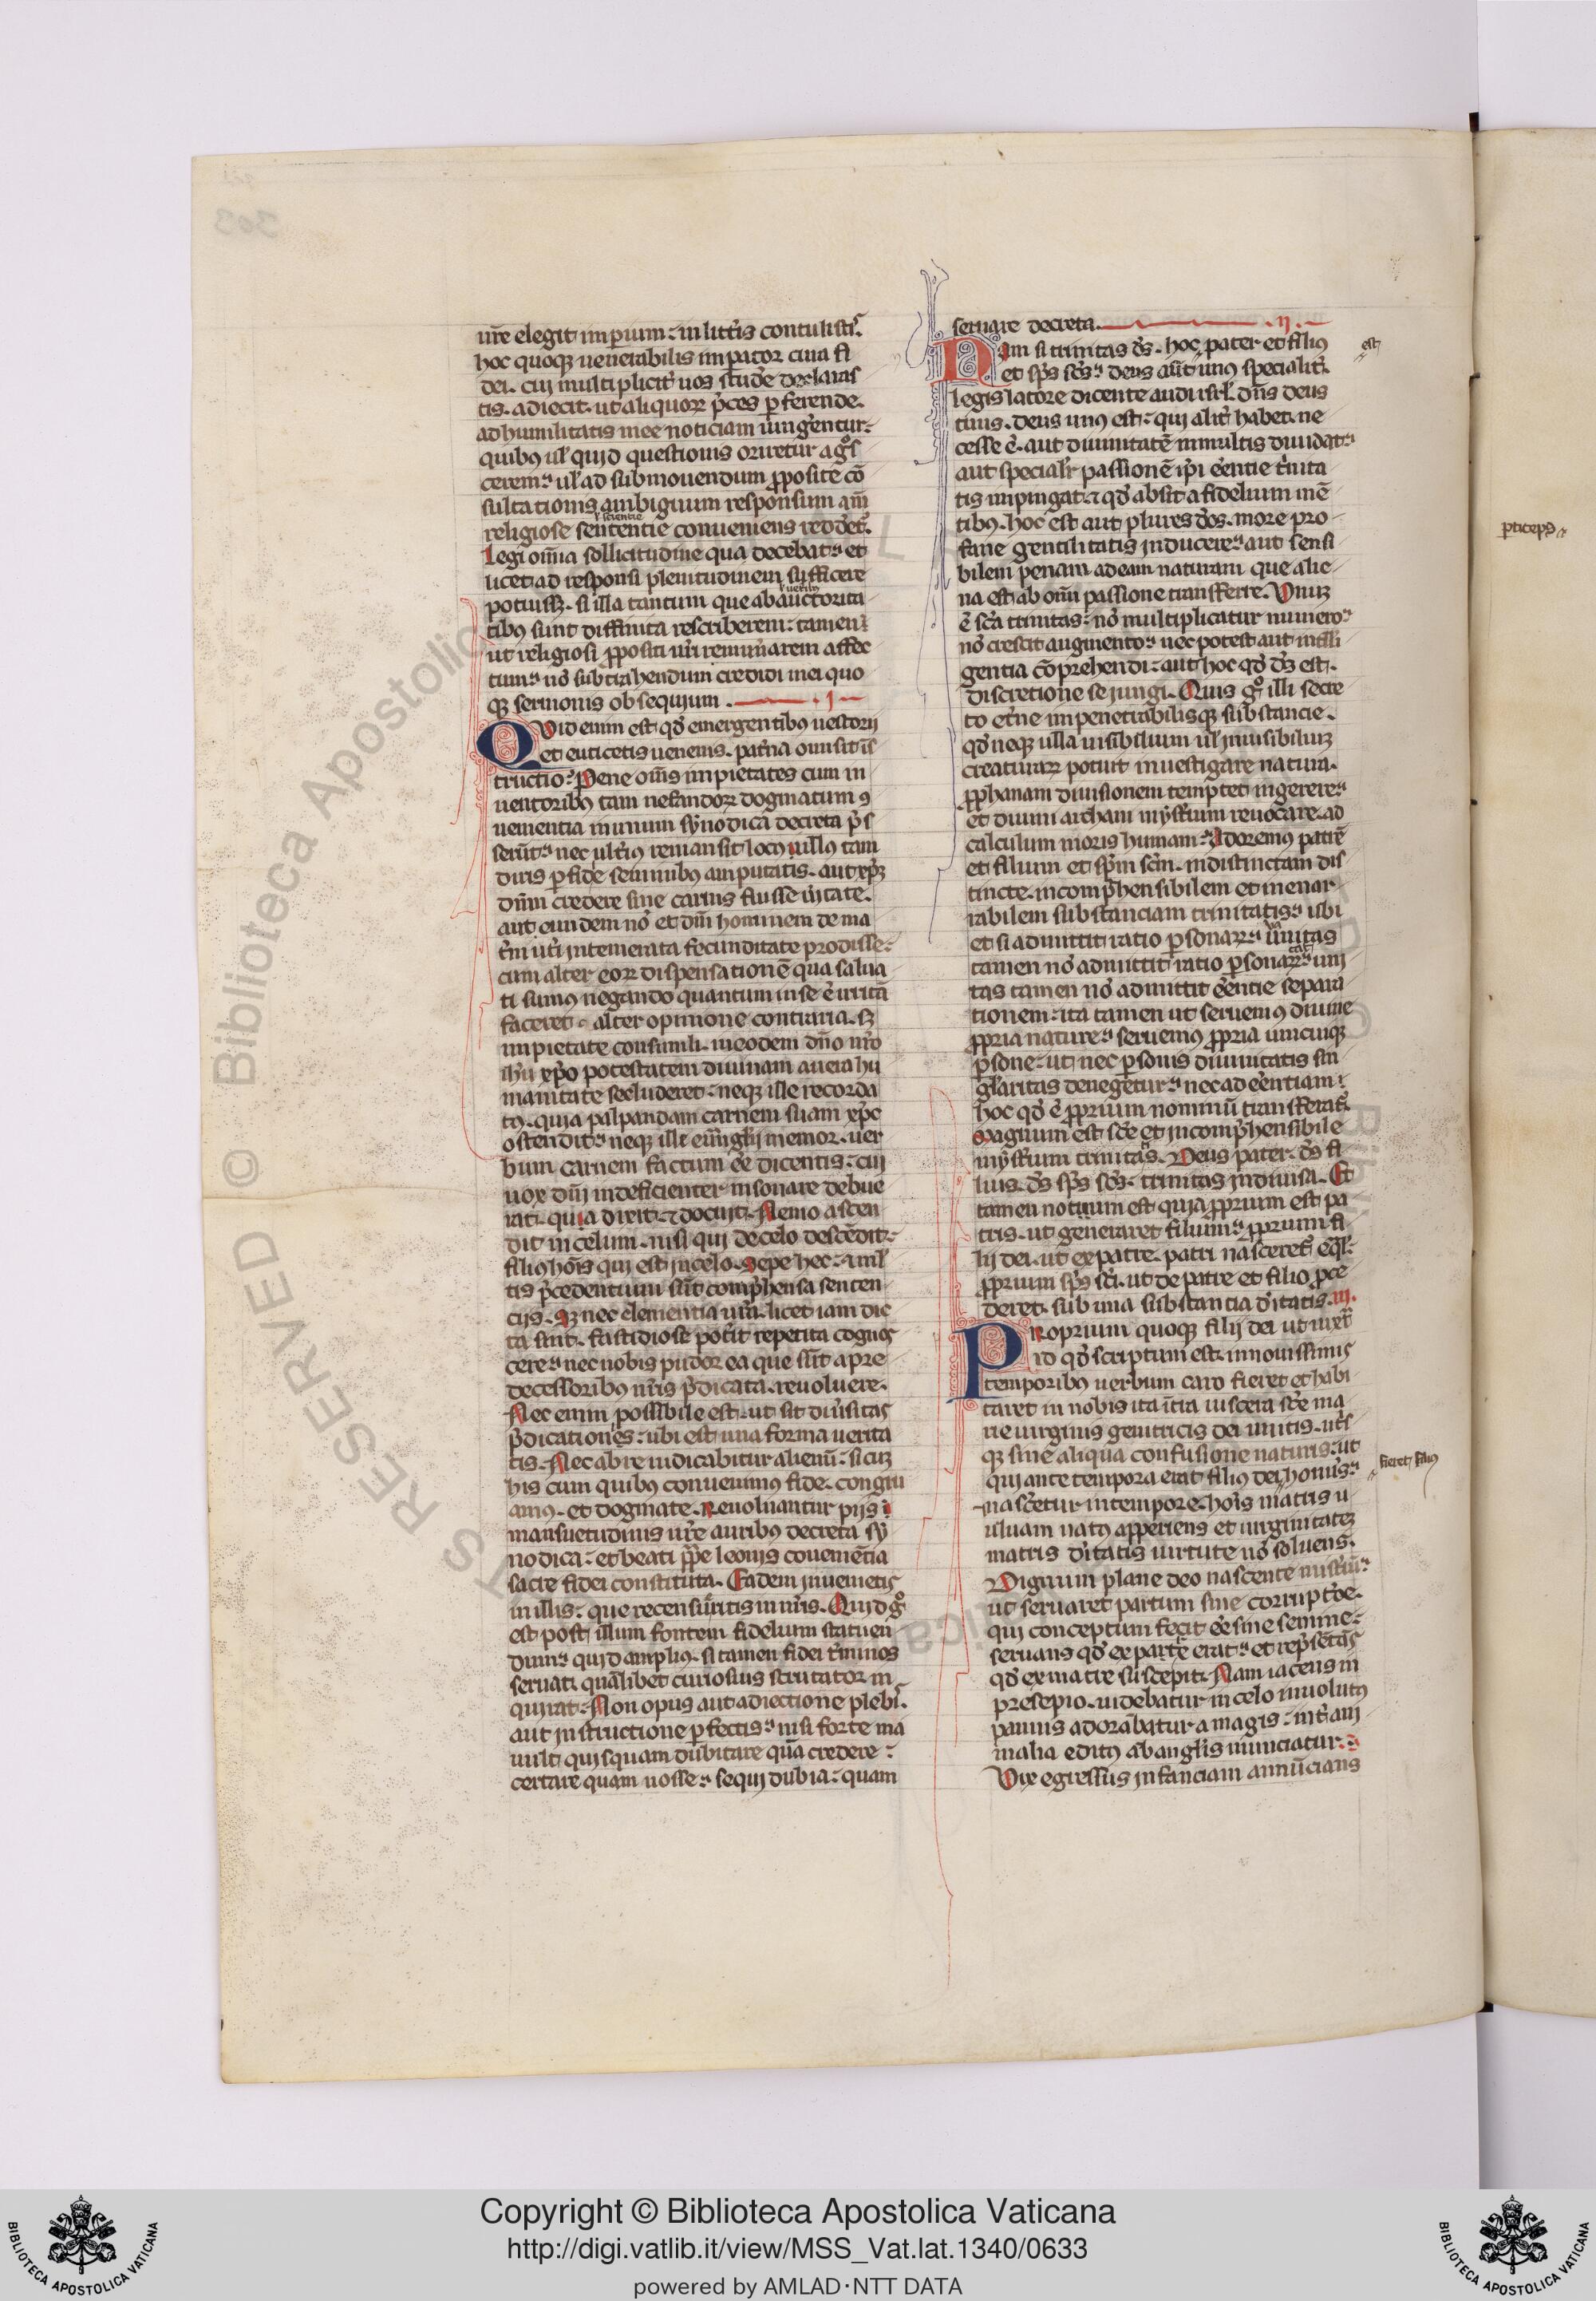 ur̄e elegit imperium. in litt̄is contulisti.
hoc quoqꝫ uenerabilis impator circa fi
dei. cui multiplicit̄ uos stude declaras
tis. adiecit. ut aliquoꝝ p̄ces ꝑferende.
ad humilitatis mee noticiam iungerentur.
quibꝰ ul̓ quid questionis oriretur agͦs
cerem. ul̓ ad submouendum ꝓposite cō
sultationis ambiguum responsum am̄
ł scientie
religiose sententie conueniens redd̓et̓.
Legi om̄ia sollicitudine qua decebat. et
licet ad responsi plenitudinem sufficere
ł ueritū
potuissꝫ. si illa tantum que ab auctorita
tibꝰ sunt diffinita rescriberem. tamen
ut religiosi ꝓpositi ur̄i remun̓arem affec
tum. nō subtrahendum credidi mei quo
qꝫ sermonis obsequium. .j.
Quid enim est qd̓ emergentibꝰ nestorij
et euticetis uenenis. pat̓na omisit īs
tructio. Pene om̄s impietates cum in
uentoribꝰ tam nefandoꝝ dogmatum ꝯ
uenientia in unum synodica decreta p̄s
serūt. nec ult̓ius remansit locꝰ ullꝰ tam
diris ꝑfide seminibꝰ amputatis. aut xp̄ꝫ
dn̄m credere sine carnis fuisse ūitate.
aut eundem nō et dm̄ hominem de ma
t̓ni ut̓i intemerata fecunditate prodisse.
cum alter eoꝝ dispensationē qua salua
ti sumꝰ negando quantum in se ē irritā
faceret. alter opinione contraria. sꝫ
impietate consimili. in eodem dn̄o nr̄o
ihū xp̄o potestatem diuinam a uera hu
manitate secluderet. neqꝫ ille recorda
tꝰ. quia palpandam carnem suam xp̄c
ostendit. neqꝫ ille eūnglij memor. uer
bum carnem factum eē dicentis. cui
uox dn̄i indeficienter insonare debue
rat. quia dixit. ⁊ docuit. Nemo ascen
dit in celum. nisi qui de celo descēdit.
filiꝰ hōis qui est in celo. Sepe hec. ⁊ ml̓
tis p̄cedentium sūt comp̄hensa senten
cijs. Sꝫ nec clementia ur̄a. licet iam dic
ta sint. fastidiose pot̓it repetita cognos
cere. nec nobis pudor ea que sūt a pre
decessoribꝰ nr̄is p̄dicata. reuoluere.
Nec enim possibile est. ut sit diu̓sitas
p̄dicationes. ubi est una forma uerita
tis. Nec ab re iudicabitur alienū. si cuꝫ
his cum quibꝰ conuenimꝰ fide. congru
amꝰ. et dogmate. Reuoluantur pijs
mansuetudinis ur̄e auribꝰ decreta sy
nodica. et beati pp̄e leonis coueniētia
sacre fidei constituta. Eadem inuenietis
in illis. que recensūritis in nr̄is. Quid gͦ
est post illum fontem fidelium statuen
dum. quid ampliꝰ. si tamen fidei t̓minos
seruat. quālibet curiosius scrutator in
quirat. Non opus aut adiectione plebis.
aut instructione ꝑfectis. nisi forte ma
uult quisquam dubitare quā credere.
certare quam nosse. sequi dubia. quam
seruare decreta. .ij.
Nam si trinitas ds̄. hoc pater et filiꝰ
est
et sp̄s sc̄s. deus aūt unꝰ specialit̓.
legislatore dicente audi isrl̓. dn̄s deus
tuus. deus unꝰ est. qui alit̓ habet. ne
cesse ē. aut diuinitatē in multis diuidat.
aut specialr̓ passionē ip̄i eēntie t̓nita
tis impingat. ⁊ qd̓ absit a fidelium mē
tibꝰ. hoc est aut plures dōs. more pro
fane gentilitatis inducere. aut sensi
bilem penam ad eam naturam que alie
na est ab om̄i passione transferre. Vnuꝫ
ē sc̄a trinitas. nō multiplicatur numero.
nō crescit augmento. nec potest aut intelli
gentia cōprehendi. aut hoc qd̓ ds̄ est.
discretione seiungi. Quis gͦ illi secre
to et̓ne impenetrabilisqꝫ substancie.
qd̓ neqꝫ ulla uisibilium ul̓ inuisibiliuꝫ
creaturaꝝ potuit inuestigare natura.
ꝓphanam diuisionem temptet ingerere.
et diuini archani myst̓ium reuocare. ad
calculum moris humani. Adoremꝰ patrē
et filium et sp̄m sc̄m. indistinctam dis
tincte. incomp̄hensibilem et inenar
rabilem substanciam trinitatis. ubi
et si admittit ratio ꝑsonaꝝ. ūnitas
tamen nō admittit ratio ꝑsonaꝝ. uni
tas tamen nō admittit eēntie separa
tionem. ita tamen ut seruemꝰ diuine
ꝓpria nature. seruemꝰ ꝓpria unicuiqꝫ
ꝑsone. ut nec ꝑsonis diuinitatis sin
gl̓aritas denegetur. nec ad eēntiam
hoc qd̓ ē ꝓprium nominū transferat̓.
Magnum est sc̄e et incomp̄hensibile
myst̓ium trinitatis. Deus pater. ds̄ fi
lius. ds̄ sp̄s sc̄s. trinitas indiuisa. Et
tamen notuum est quia ꝓprium est pa
tris. ut generaret filium. ꝓprium fi
lij dei. ut ex patre. patri nasceret̓ eql̓.
ꝓprium sp̄s sc̄i. ut de patre et filio ꝓce
deret. sub una substantia d̓itatis. iij.
Proprium quoqꝫ filij dei ut iuxͣ
id qd̓ scriptum est. in nouissimis
temporibꝰ uerbum caro fieret et habi
taret in nobis ita īt̓ia uiscera sc̄e ma
rie uirginis genitricis dei unitis. ut̓s
qꝫ sine aliqua confusione naturis. ut
qui ante tempora erat filiꝰ dei homi̓s.
fieret filiꝰ
nasc̄etur in tempore. hōis matris u
uluam natꝰ apperiens et uirginitateꝫ
matris d̓itatis uirtute nō soluens.
Dignum plane deo nascente mist̓iū.
ut seruaret partum sine corrupt̓oe.
qui conceptum fecit eē sine semine.
seruans qd̓ ex partē erat. et rep̄sētās
qd̓ ex matre suscepit. Nam iacens in
presepio. uidebatur in celo inuolutꝰ
pannis adorabatur a magis. int̓ ani
malia editꝰ ab angl̓is nunciatur.
Vix egressus infanciam annūcians
ꝑticeps
Copyright © Biblioteca Apostolica Vaticana
http://digi.vatlib.it/view/MSS_Vat.lat.1340/0633
powered by AMLAD·NTT DATA
BIBLIOTECA APOSTOLICA VATICANA
BIBLIOTECA APOSTOLICA VATICANA